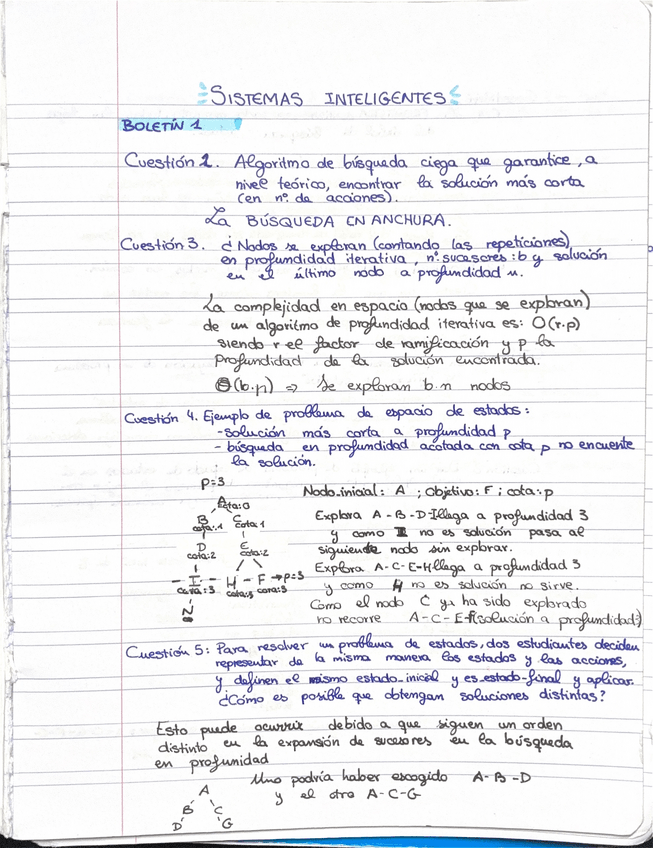 SISTEMAS INTELIGENTES
BOLETÍN 1
Cuestión 2. Algoritmo de búsqueda ciega que garantice, a
nivel teórico, encontrar la solución más corta
(en nº de acciones).
La BÚSQUEDA EN ANCHURA.
Cuestión 3. ¿Nodos se exploran (contando las repeticiones),
en profundidad iterativa, nº sucesores: b y solución
en el último nodo a profundidad n.
La complejidad en espacio (nodos que se exploran)
de un algoritmo de profundidad iterativa es: O(r.p)
siendo r el factor de ramificación y p la
profundidad de la solución encontrada.
(b.n) => Se exploran b.n nodos
Cuestión 4. Ejemplo de problema de espacio de estados:
-solución más corta a profundidad p
- búsqueda en profundidad acotada con cota p no encuente
la solución.
p=3
Nodo_inicial: A ; Objetivo: F ; cota: p
A cota:0
B cota:1 C cota 1
D cota:2 E cota:2
I cota:3 H cota:3 F →p=3 cota:3
N
Explora A-B-D-I llega a profundidad 3
y como I no es solución pasa al
siguiente nodo sin explorar.
Explora A-C-E-H llega a profundidad 3
y como H no es solución no sirve.
Como el nodo C ya ha sido explorado
no recorre A-C-E-F (solución a profundidad 3)
Cuestión 5: Para resolver un problema de estados, dos estudiantes deciden
representar de la misma manera los estados y las acciones,
y definen el mismo estado_inicial y es_estado_final y aplicar.
¿Cómo es posible que obtengan soluciones distintas?
Esto puede ocurrir debido a que siguen un orden
distinto en la expansión de sucesores en la búsqueda
en profunidad
Uno podría haber escogido A-B-D
y el otro A-C-G
A
B C
D G